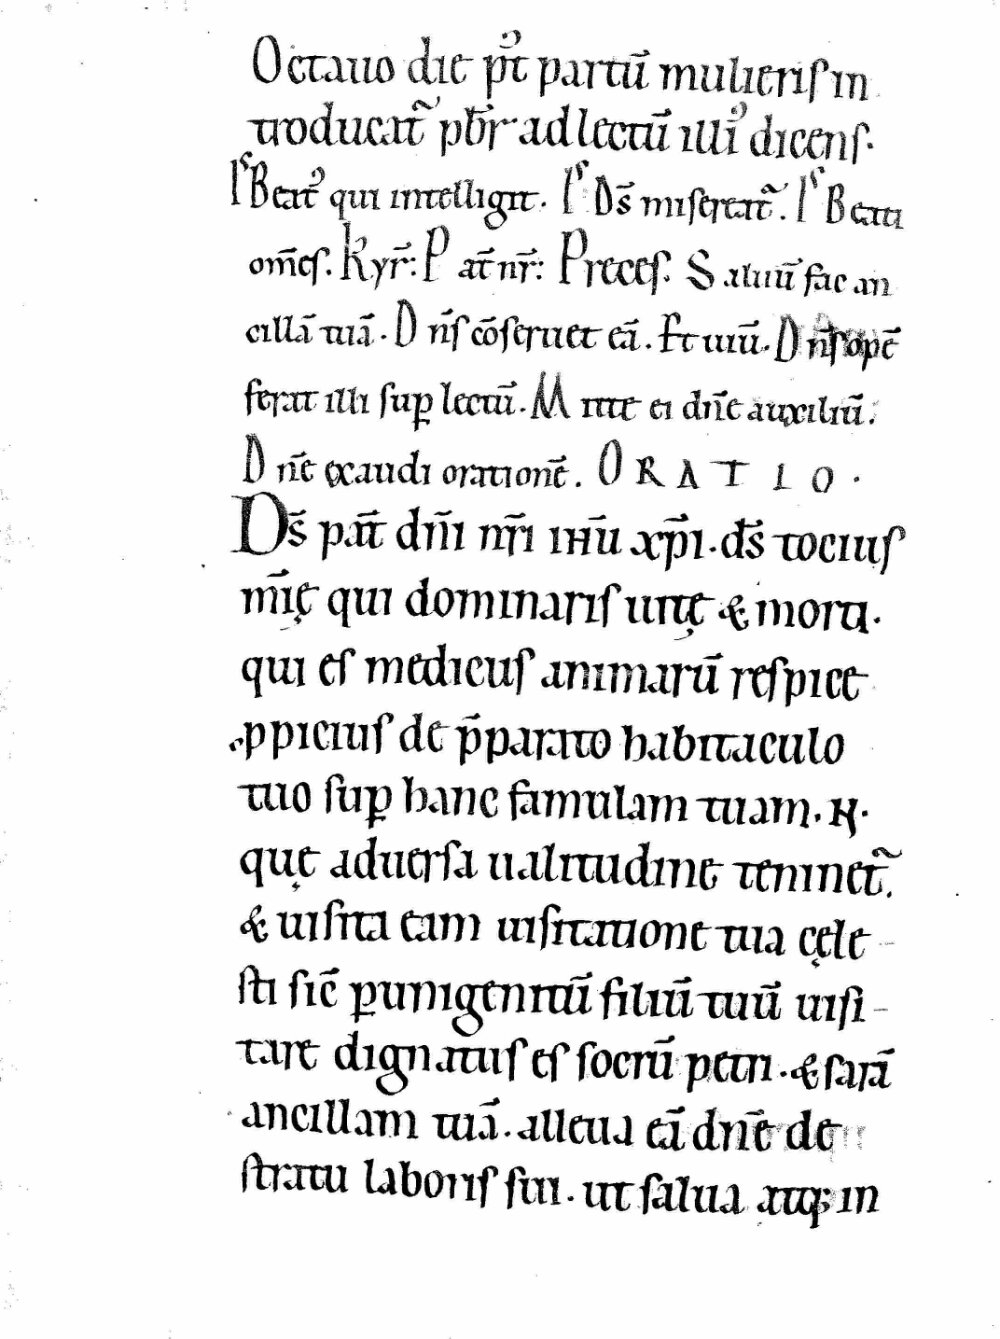 Octauo die pꝰt̄ partū mulieriſ in
troducat᷑ pb̄r ad lectū illiꝰ dicenſ.
Pſ Beatꝰ qui intelligit. Pſ Dſ̄ miſereat᷑. Pſ Beati
om̄eſ. Kyr̄: P at̄ nr̄: Preceſ. Saluū fac an
cillā tuā. D n̄ſ cōſeruet eā. Et uiū. D n̄ſ opē
ferat illi ſuꝑ lectū. M itte ei dn̄e auxiliū.
D n̄e exaudi orationē. ORATIO.
Dſ̄ pat̄ dn̄i nr̄i ihū xp̄i. dſ̄ tociuſ
m̄ię qui dominariſ uitę & morti.
qui eſ medicuſ animarū reſpice
ꝓpiciuſ de p̄parato habitaculo
tuo ſuꝑ hanc famulam tuam. N.
quę aduerſa ualitudine teninet᷑.
& uiſita eam uiſitatione tua cęle
ſti ſic̄ ꝑ unigenitū filiū tuū uiſi-
tare dignatuſ eſ ſocrū petri. & ſarā
ancillam tuā. alleua eā dn̄e de
ſtratu laboriſ ſui. ut ſalua atq; in